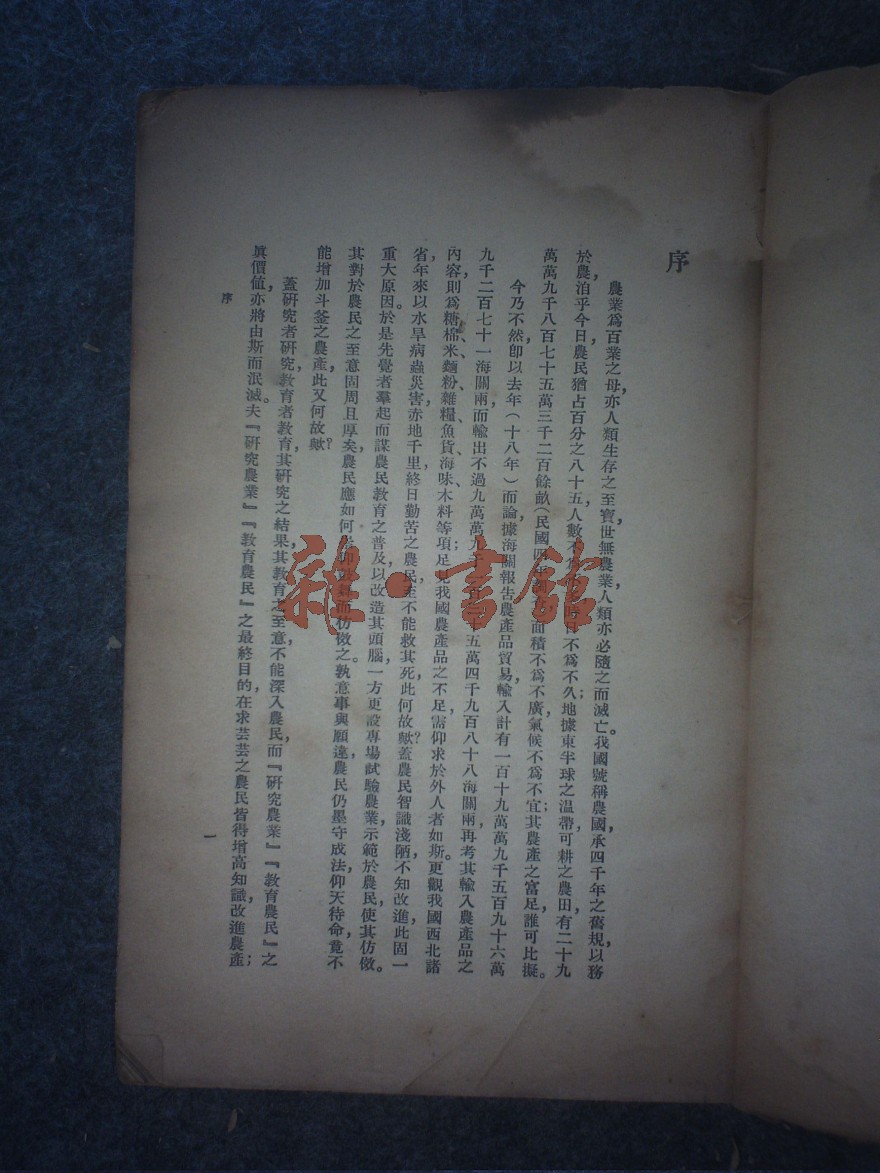 序
農業爲百業之母，亦人類生存之至寶，世無農業，人類亦必隨之而滅亡。我國號稱農國，承四千年之舊規，以務
於農，洎乎今日，農民猶占百分之八十五，人數不爲不久；地據東半球之温帶，可耕之農田有二十九
萬萬九千八百七十五萬三千二百餘畝（民國四面積不爲不廣，氣候不爲不宜，其農產之富足，誰可比擬。
今乃不然，卽以去年（十八年）而論，據海關報告，農產品貿易，輸入計有一百十九萬萬九千五百九十六萬
九千二百七十一海關兩，而輸出不過九萬萬九千五萬四千九百八十八海關兩，再考其輸入農產品之
內容，則爲糖、棉、米、麵粉、雜糧、魚貨、海味、木料等項，足見我國農產品之不足，需仰求於外人者如斯。更觀我國西北諸
省，年來以水旱病蟲災害，赤地千里，終日勤苦之農民，至不能救其死，此何故歟？蓋農民智識淺陋，不知改進，此固一
重大原因。於是先覺者羣起而謀農民教育之普及，以改造其頭腦，一方更設專場試驗農業，示範於農民，使其仿傚。
其對於農民之至意，固周且厚矣，農民應如何而仿傚之，孰意事與願違，農民仍墨守成法，仰天待命，竟不
能增加斗釜之農產，此又何故歟？
蓋研究者研究，教育者教育，其研究之結果，其教育之至意，不能深入農民，而『研究農業』『教育農民』之
眞價値，亦將由斯而泯滅。夫『研究農業』『教育農民』之最終目的，在求芸芸之農民，皆得增高知識，改進農產；
序
一
雜·書館